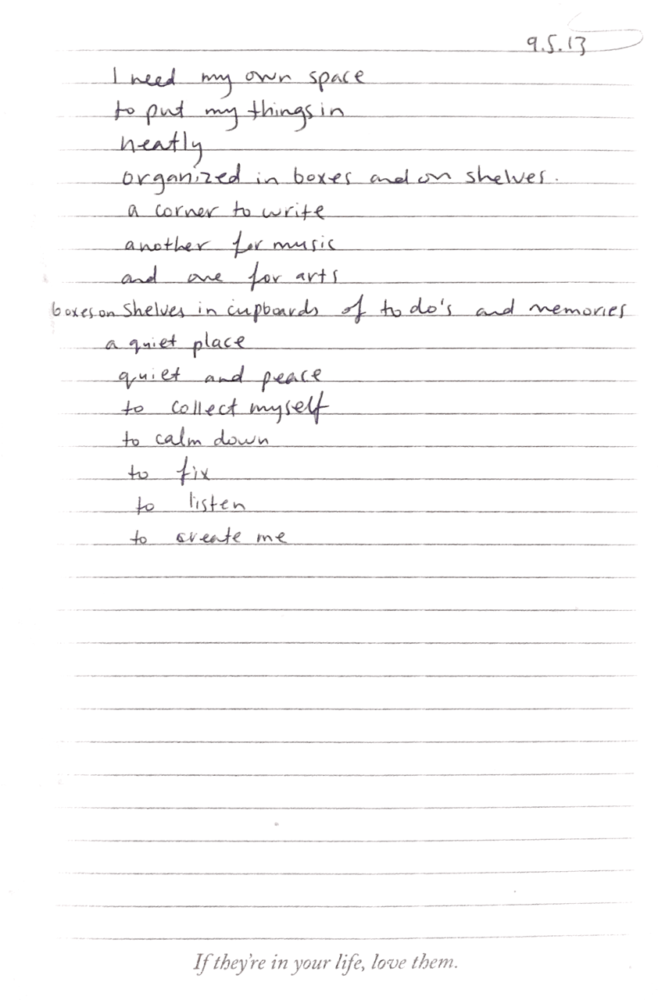 9.5.13
I need my own space
to put my things in
neatly
organized in boxes and on shelves.
a corner to write
another for music
and one for arts
boxes on shelves in cupboards of to do's and memories
a quiet place
quiet and peace
to collect myself
to calm down
to fix
to listen
to create me
If they're in your life, love them.